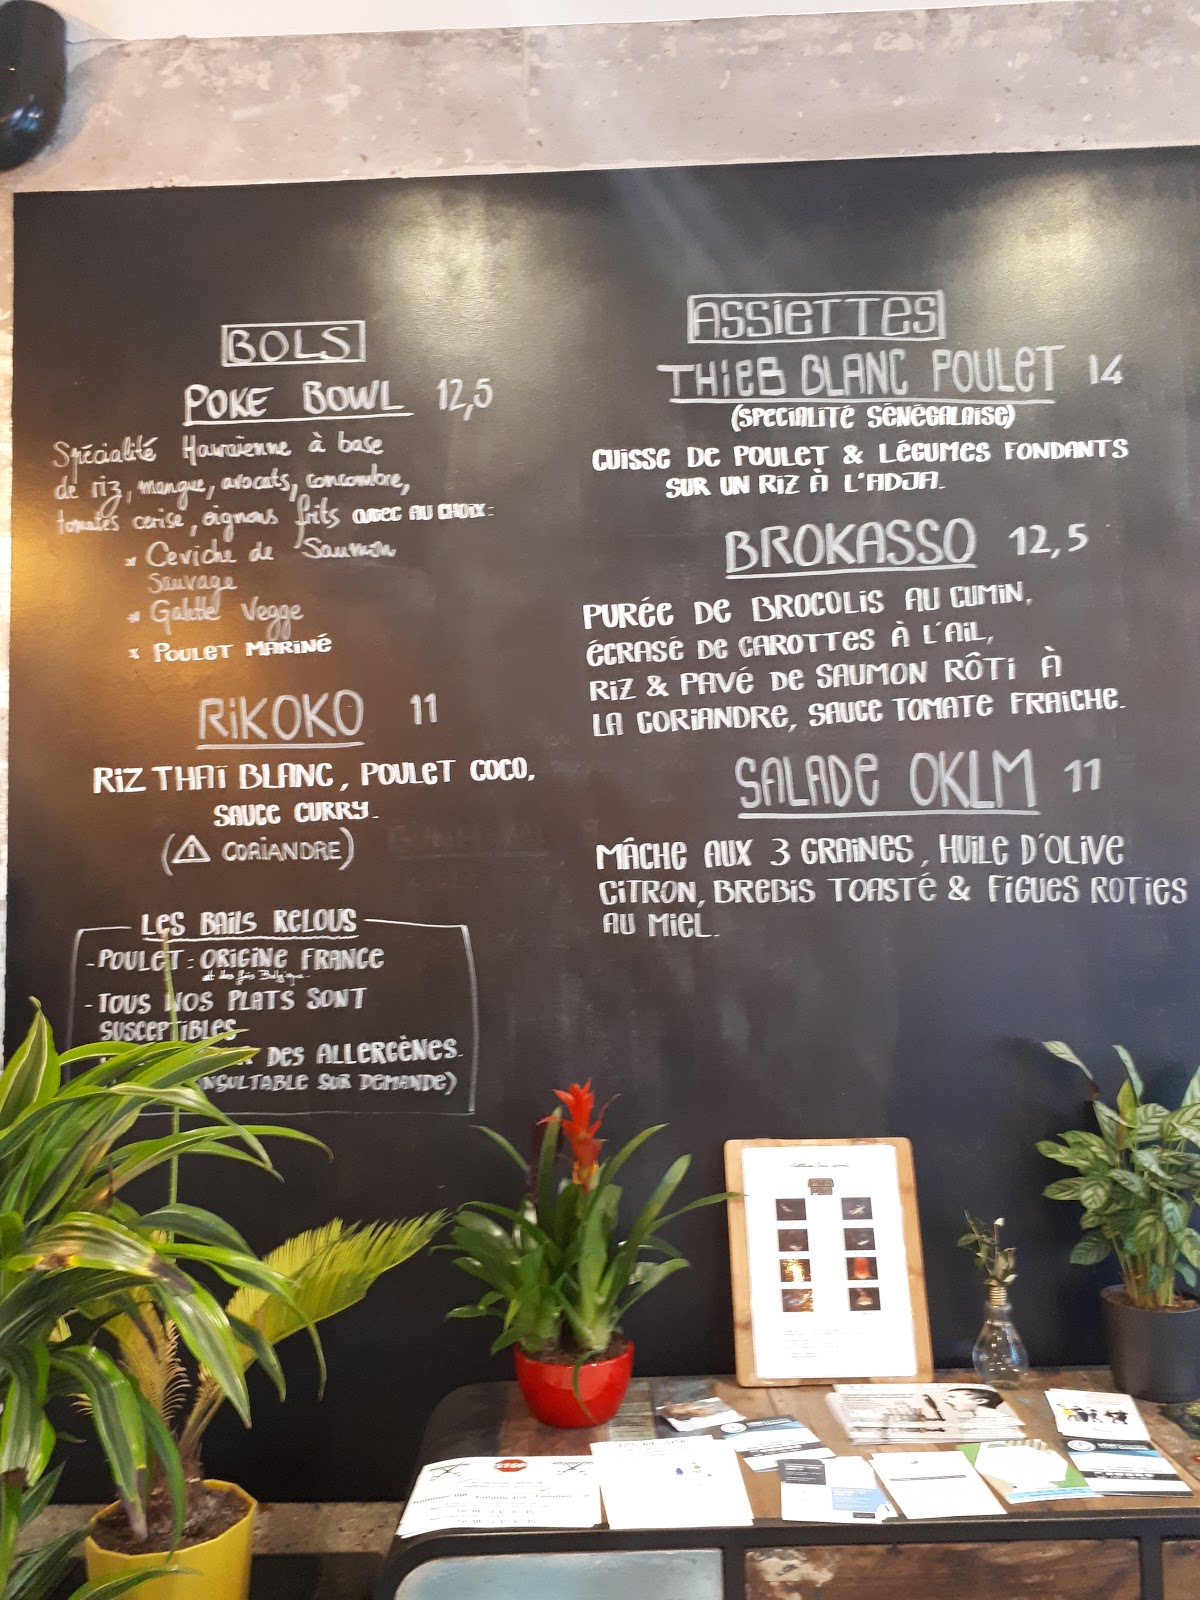 BOLS
POKE BOWL 12,5
Spécialité Hawaïenne à base
de riz, mangue, avocats, concombre,
tomates cerise, oignons frits avec AU CHOIX:
* Ceviche de Saumon
Sauvage
* Galette Vegge
* POULET MARINÉ
RIKOKO 11
RIZ THAÏ BLANC, POULET COCO,
SAUCE CURRY.
(⚠ CORIANDRE)
LES BAILS RELOUS
-POULET: ORIGINE FRANCE
et des fois Belgique
-TOUS NOS PLATS SONT
SUSCEPTIBLES
DES ALLERGÈNES.
SUR DEMANDE)
ASSIETTES
THIEB BLANC POULET 14
(SPECIALITÉ SÉNÉGALAISE)
CUISSE DE POULET & LÉGUMES FONDANTS
SUR UN RIZ À L'ADJA.
BROKASSO 12,5
PURÉE DE BROCOLIS AU CUMIN,
ÉCRASÉ DE CAROTTES À L'AIL,
RIZ & PAVÉ DE SAUMON RÔTI À
LA CORIANDRE, SAUCE TOMATE FRAICHE.
SALADE OKLM 11
MÂCHE AUX 3 GRAINES, HUILE D'OLIVE
CITRON, BREBIS TOASTÉ & FIGUES ROTIES
AU MIEL.
STOP